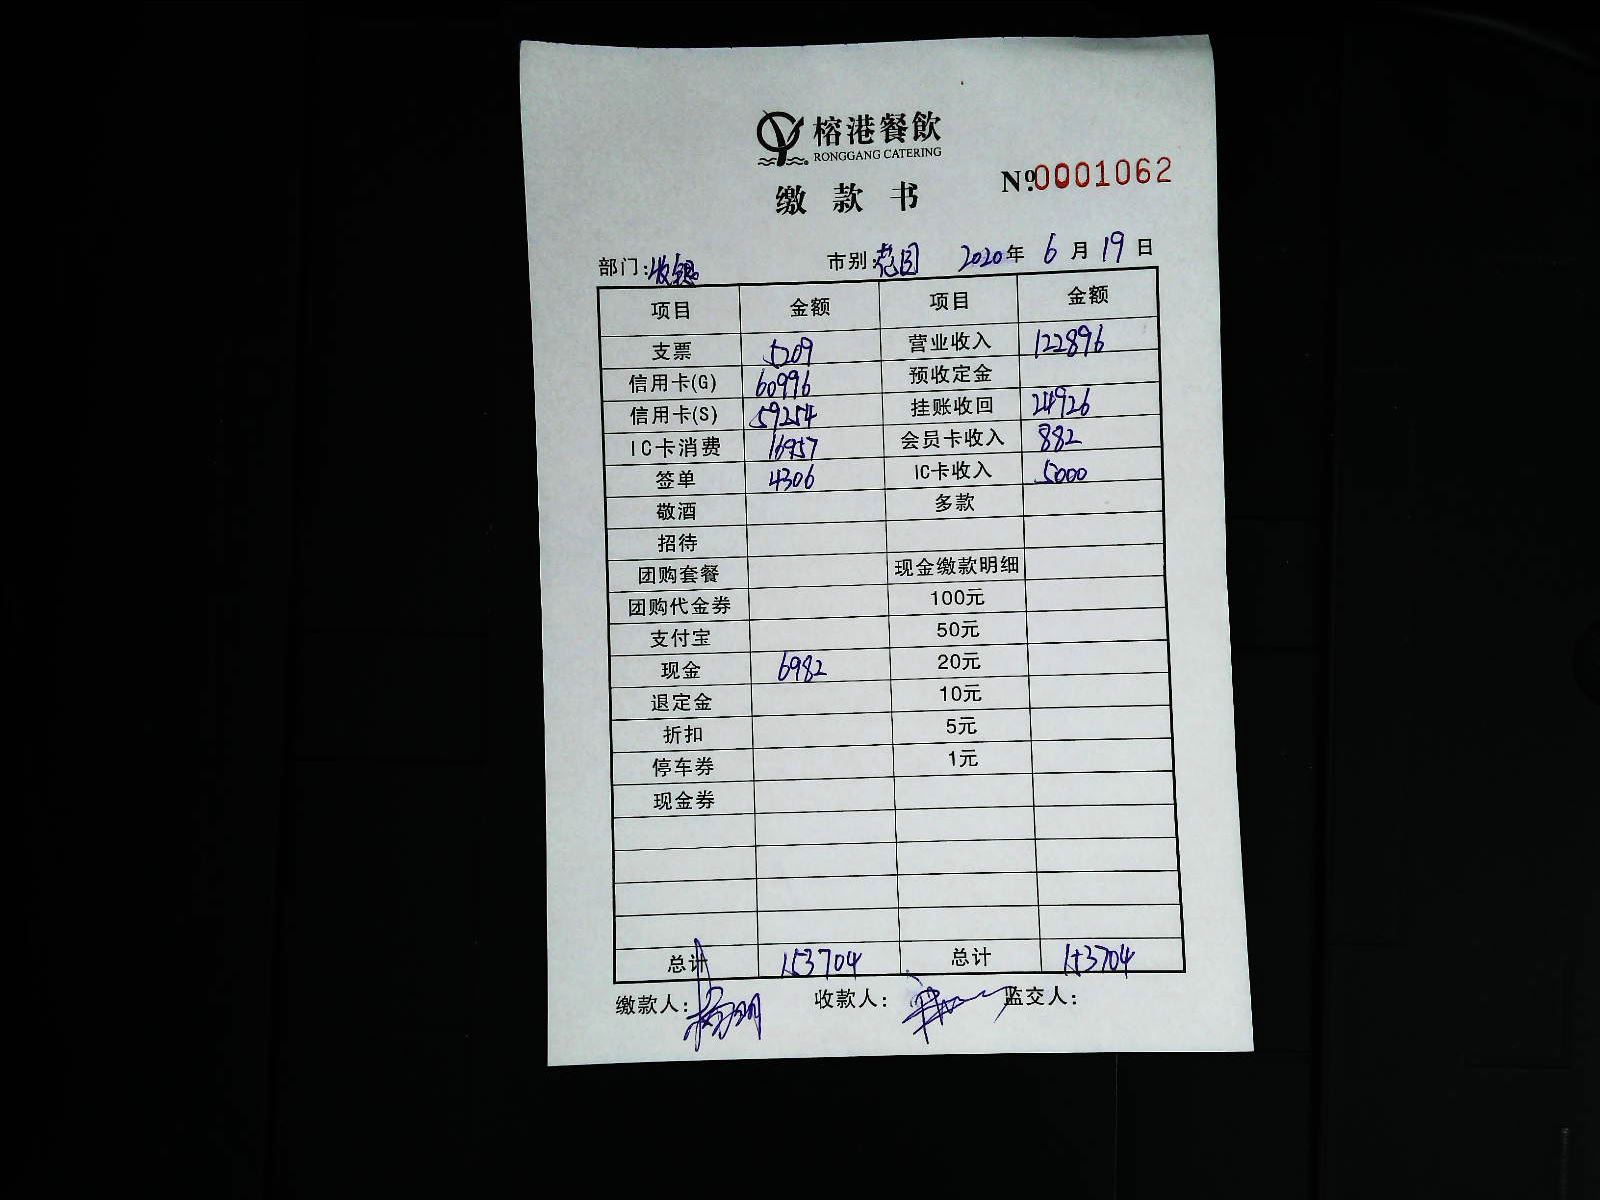 榕港餐飲
RONGGANG CATERING
缴款书 №0001062
部门:收银 市别: 2020年 6月 19日
项目 金额 项目 金额
支票 5209 营业收入 122896
信用卡(G) 60996 预收定金
信用卡(S) 59254 挂账收回 24926
IC卡消费 16957 会员卡收入 882
签单 4306 IC卡收入 5000
敬酒 多款
招待
团购套餐 现金缴款明细
团购代金券 100元
支付宝 50元
现金 6982 20元
退定金 10元
折扣 5元
停车券 1元
现金券
总计 153704 总计 153704
缴款人: 收款人: 监交人: